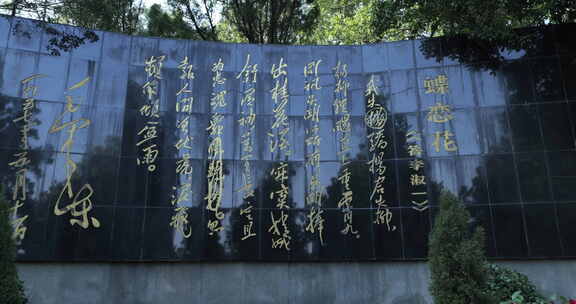 蝶恋花
《答李淑一》
我失骄杨君失柳,
杨柳轻飏直上重霄九。
问讯吴刚何所有,吴刚捧
出桂花酒。寂寞嫦娥
舒广袖,万里长空且
为忠魂舞。忽报
人间曾伏虎,泪飞
顿作倾盆雨。
毛泽东
一九五七年五月十一日